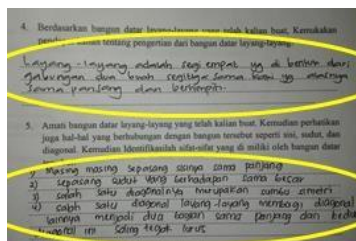 4. Berdasarkan bangun datar layang-layang yang telah kalian buat, Kemukakan
pendapat kalian tentang pengertian dari bangun datar layang-layang.
Layang-layang adalah segi empat yg di bentuk dari
gabungan dua buah segitiga sama kaki yg alasnya
sama panjang dan berhimpit.
5. Amati bangun datar layang-layang yang telah kalian buat. Kemudian perhatikan
juga hal-hal yang berhubungan dengan bangun tersebut seperti sisi, sudut, dan
diagonal. Kemudian Identifikasilah sifat-sifat yang di miliki oleh bangun datar
1) Masing masing sepasang sisinya sama panjang
2) sepasang sudut yang berhadapan sama besar
3) salah satu diagonalnya merupakan sumbu simetri
4) salah satu diagonal layang-layang membagi diagonal
lainnya menjadi dua bagian sama panjang dan kedua
diagonal ini saling tegak lurus